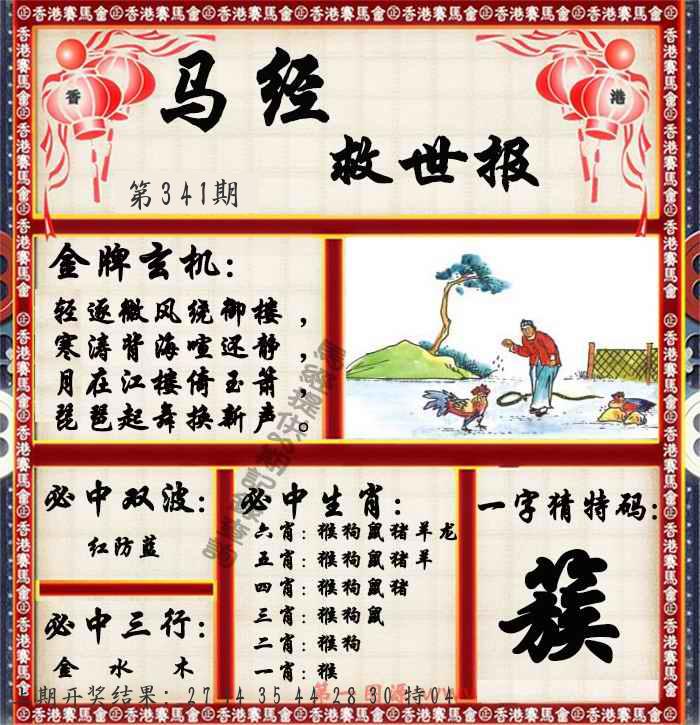 香 港
马经
救世报
第341期
金牌玄机：
轻逐微风绕御楼，
寒涛背海喧还静，
月在江楼倚玉箫，
琵琶起舞换新声。
必中双波：
红防蓝
必中三行：
金 水 木
必中生肖：
六肖：猴狗鼠猪羊龙
五肖：猴狗鼠猪羊
四肖：猴狗鼠猪
三肖：猴狗鼠
二肖：猴狗
一肖：猴
一字猜特码：
簇
期开奖结果：27 44 35 44 28 30 特04
香港赛馬會